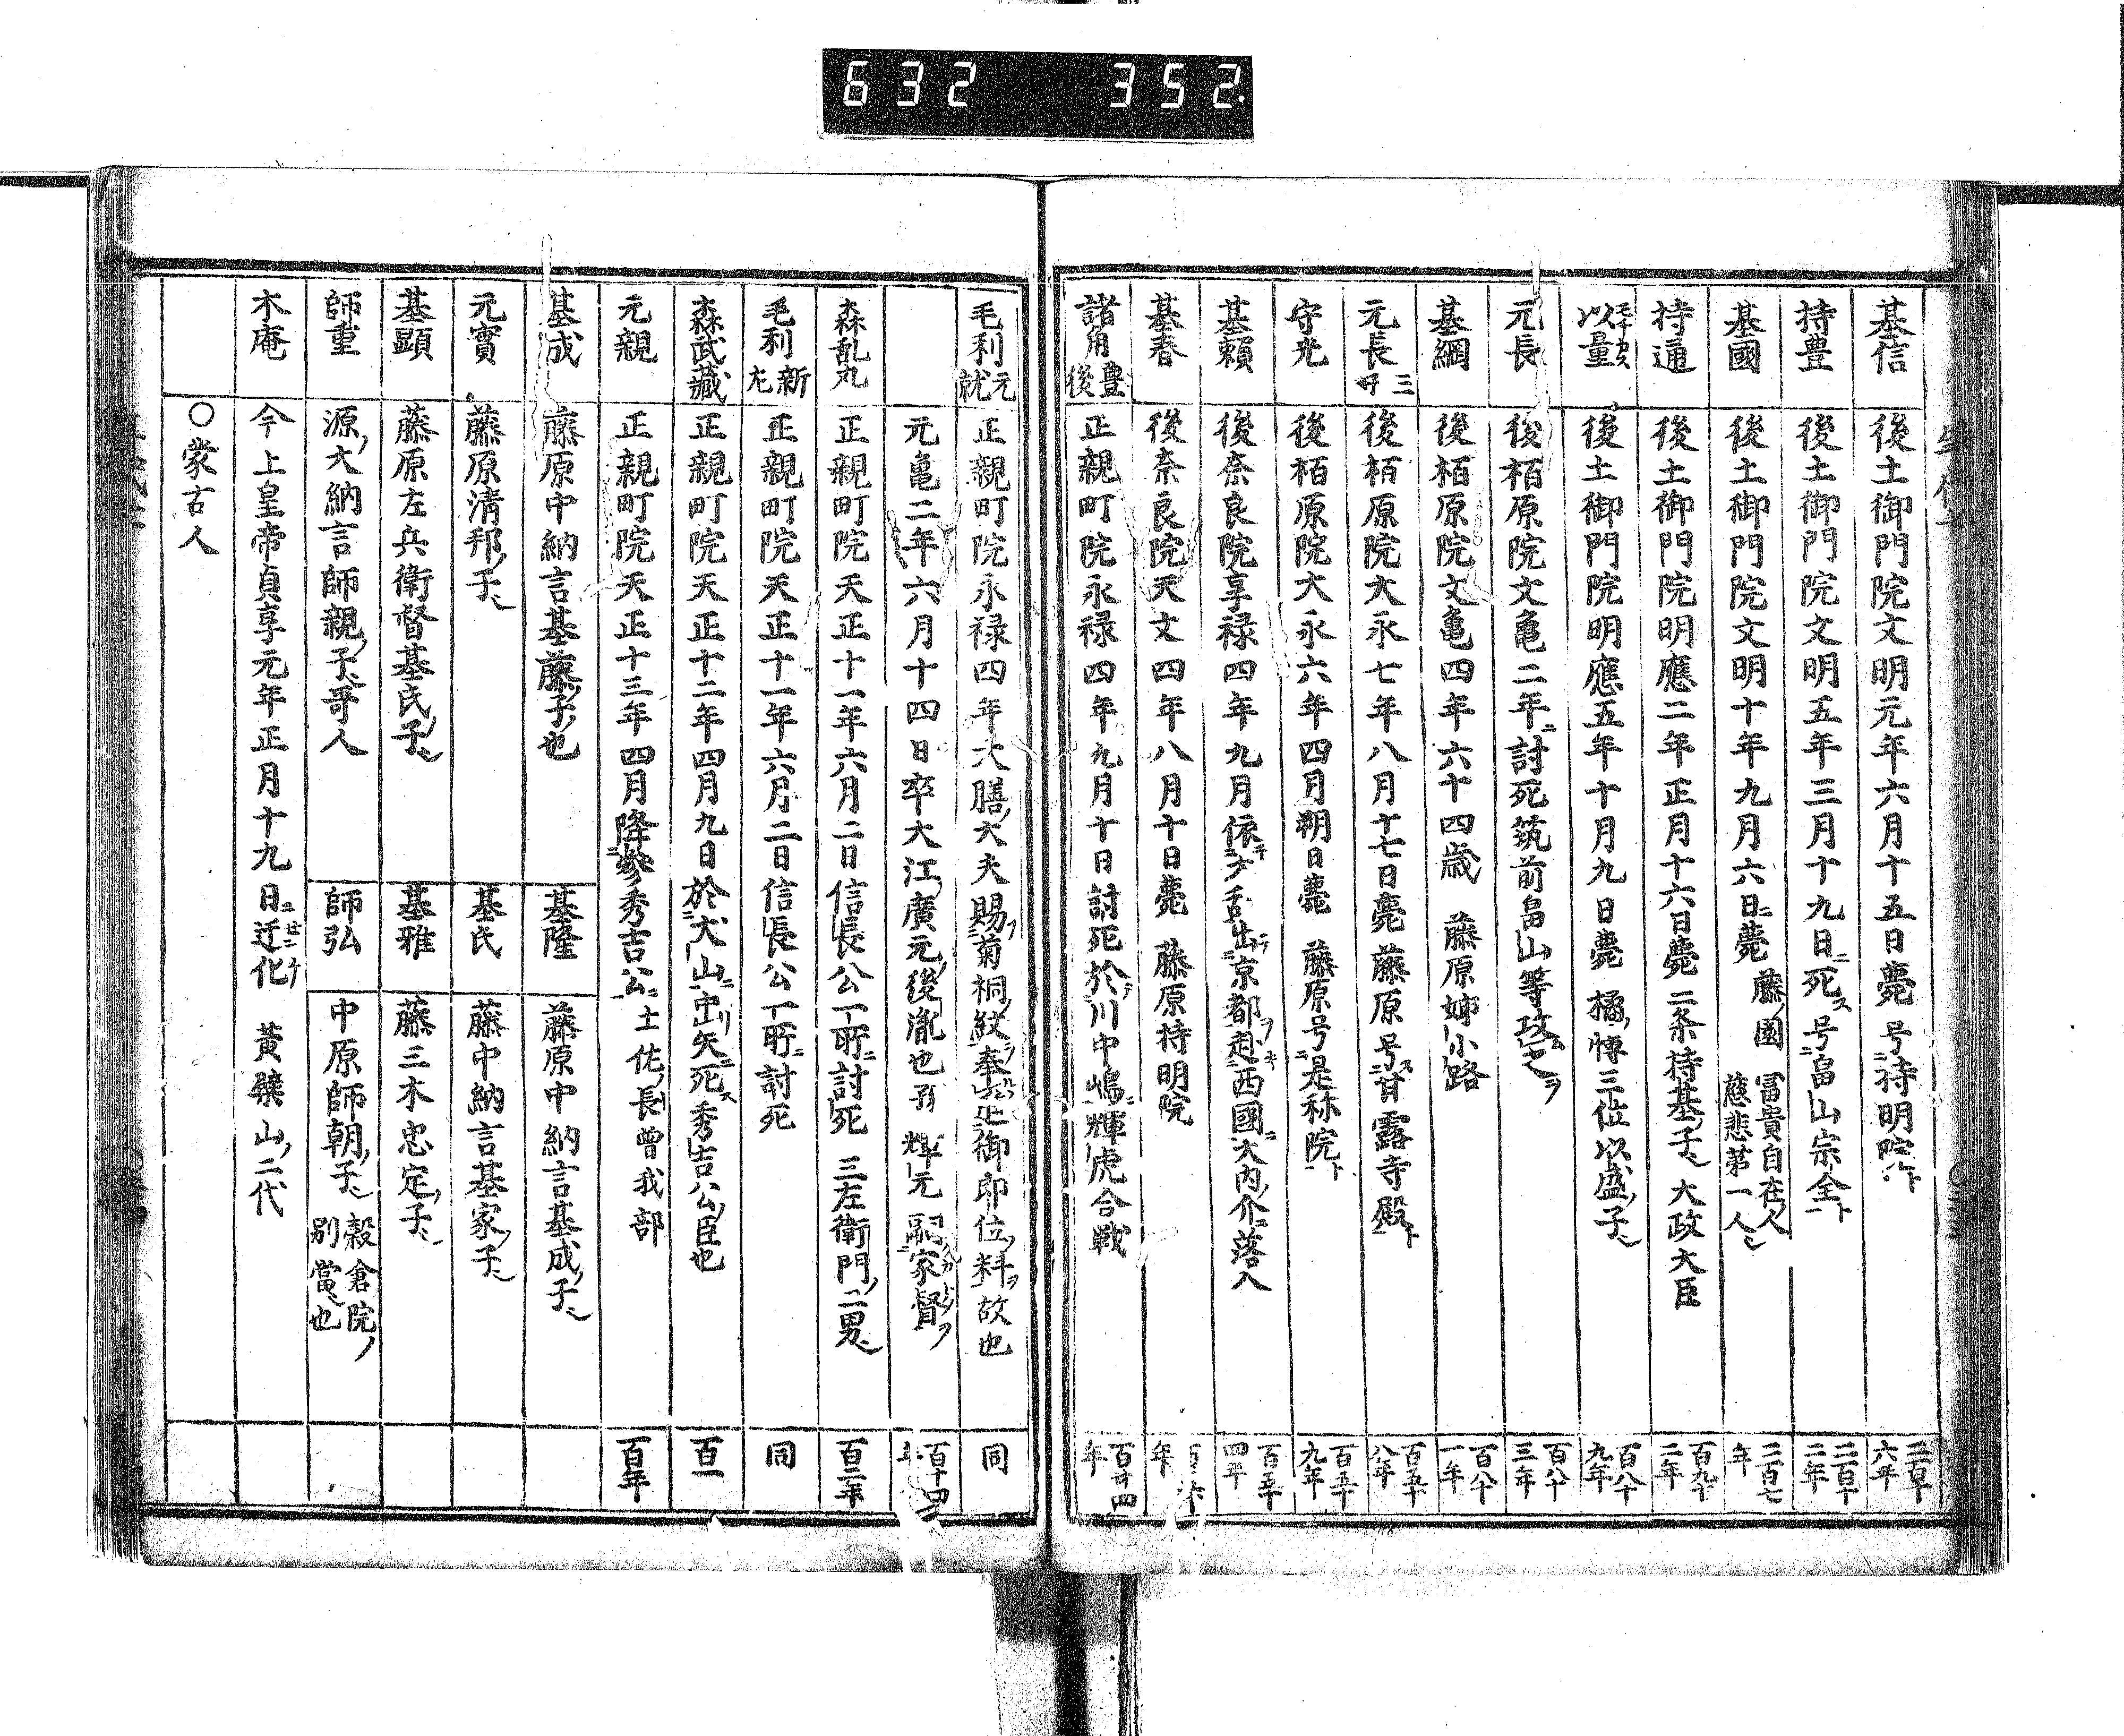 632 352.
基信 後土御門院文明元年六月十五日薨 号ニ待明院ト 二百十六年
持豊 後土御門院文明五年三月十九日ニ死ス号ニ畠山宗全ト 二百十二年
基國 後土御門院文明十年九月六日ニ薨 藤ノ國 冨貴自在ノ人 慈悲第一人 二百七年
持通 後土御門院明應二年正月十六日薨 二条持基ノ子 大政大臣 百九十二年
以量 後土御門院明應五年十月九日薨 橘ノ博三位以盛ノ子 百八十九年
元長 後栢原院文亀二年ニ討死筑前畠山等攻之ヲ 百八十三年
基綱 後栢原院文亀四年六十四歳 藤原姉小路 百八十一年
元長 三好 後栢原院大永七年八月十七日薨 藤原号ス甘露寺殿ト 百五十八年
守光 後栢原院大永六年四月朔日薨 藤原号ニ是称院ト 百五十九年
基頼 後奈良院享禄四年九月依テ出テ京都ヲ赴キ西國ニ大内介ニ落入 百五十四年
基春 後奈良院天文四年八月十日薨 藤原持明院
諸角 豊後 正親町院永禄四年九月十日討死於川中嶋ニ輝虎合戦 百廿四年
毛利 元就 正親町院永禄四年大膳ノ大夫賜フ菊桐ノ紋ヲ奉御即位ノ料ヲ故也 同
元亀二年六月十四日卒大江ノ廣元ノ後胤也 輝元嗣家督ヲ 百十四年
森乱丸 正親町院天正十一年六月二日信長公一所ニ討死 三左衛門ノ二男 百二年
毛利 新左 正親町院天正十一年六月二日信長公一所ニ討死 同
森武藏 正親町院天正十二年四月九日於犬山ニ中リ矢ニ死ス秀吉公ノ臣也 百一
元親 正親町院天正十三年四月降參秀吉公ニ土佐ノ長曽我部 百年
基成 藤原中納言基藤ノ子也 基隆 藤原中納言基成ノ子
元實 藤原清邦ノ子 基氏 藤中納言基家ノ子
基顕 藤原左兵衛督基氏ノ子 基雅 藤三木忠定ノ子
師重 源ノ大納言師親ノ子哥人 師弘 中原師朝ノ子 穀倉院ノ別當也
木庵 今上皇帝貞享元年正月十九日ニ迁化 黄檗山ノ二代
○蒙古人